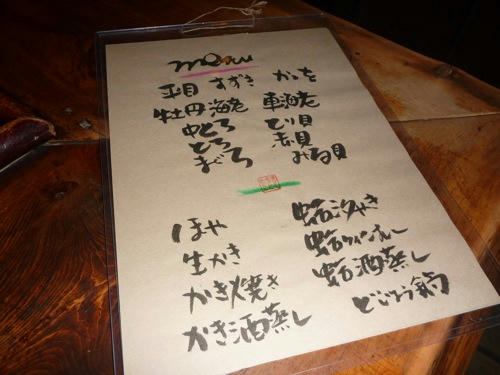 menu
平目 すずき かつを
牡丹海老 車海老
中とろ とり貝
とろ 赤貝
まぐろ みる貝
ほや 蛤汐やき
生かき 蛤ワインむし
かき焼き 蛤酒蒸し
かき酒蒸し どじょう鍋